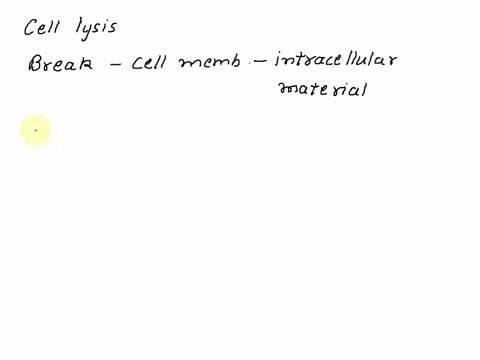 Cell lysis
Break - cell memb. - intracellular
material